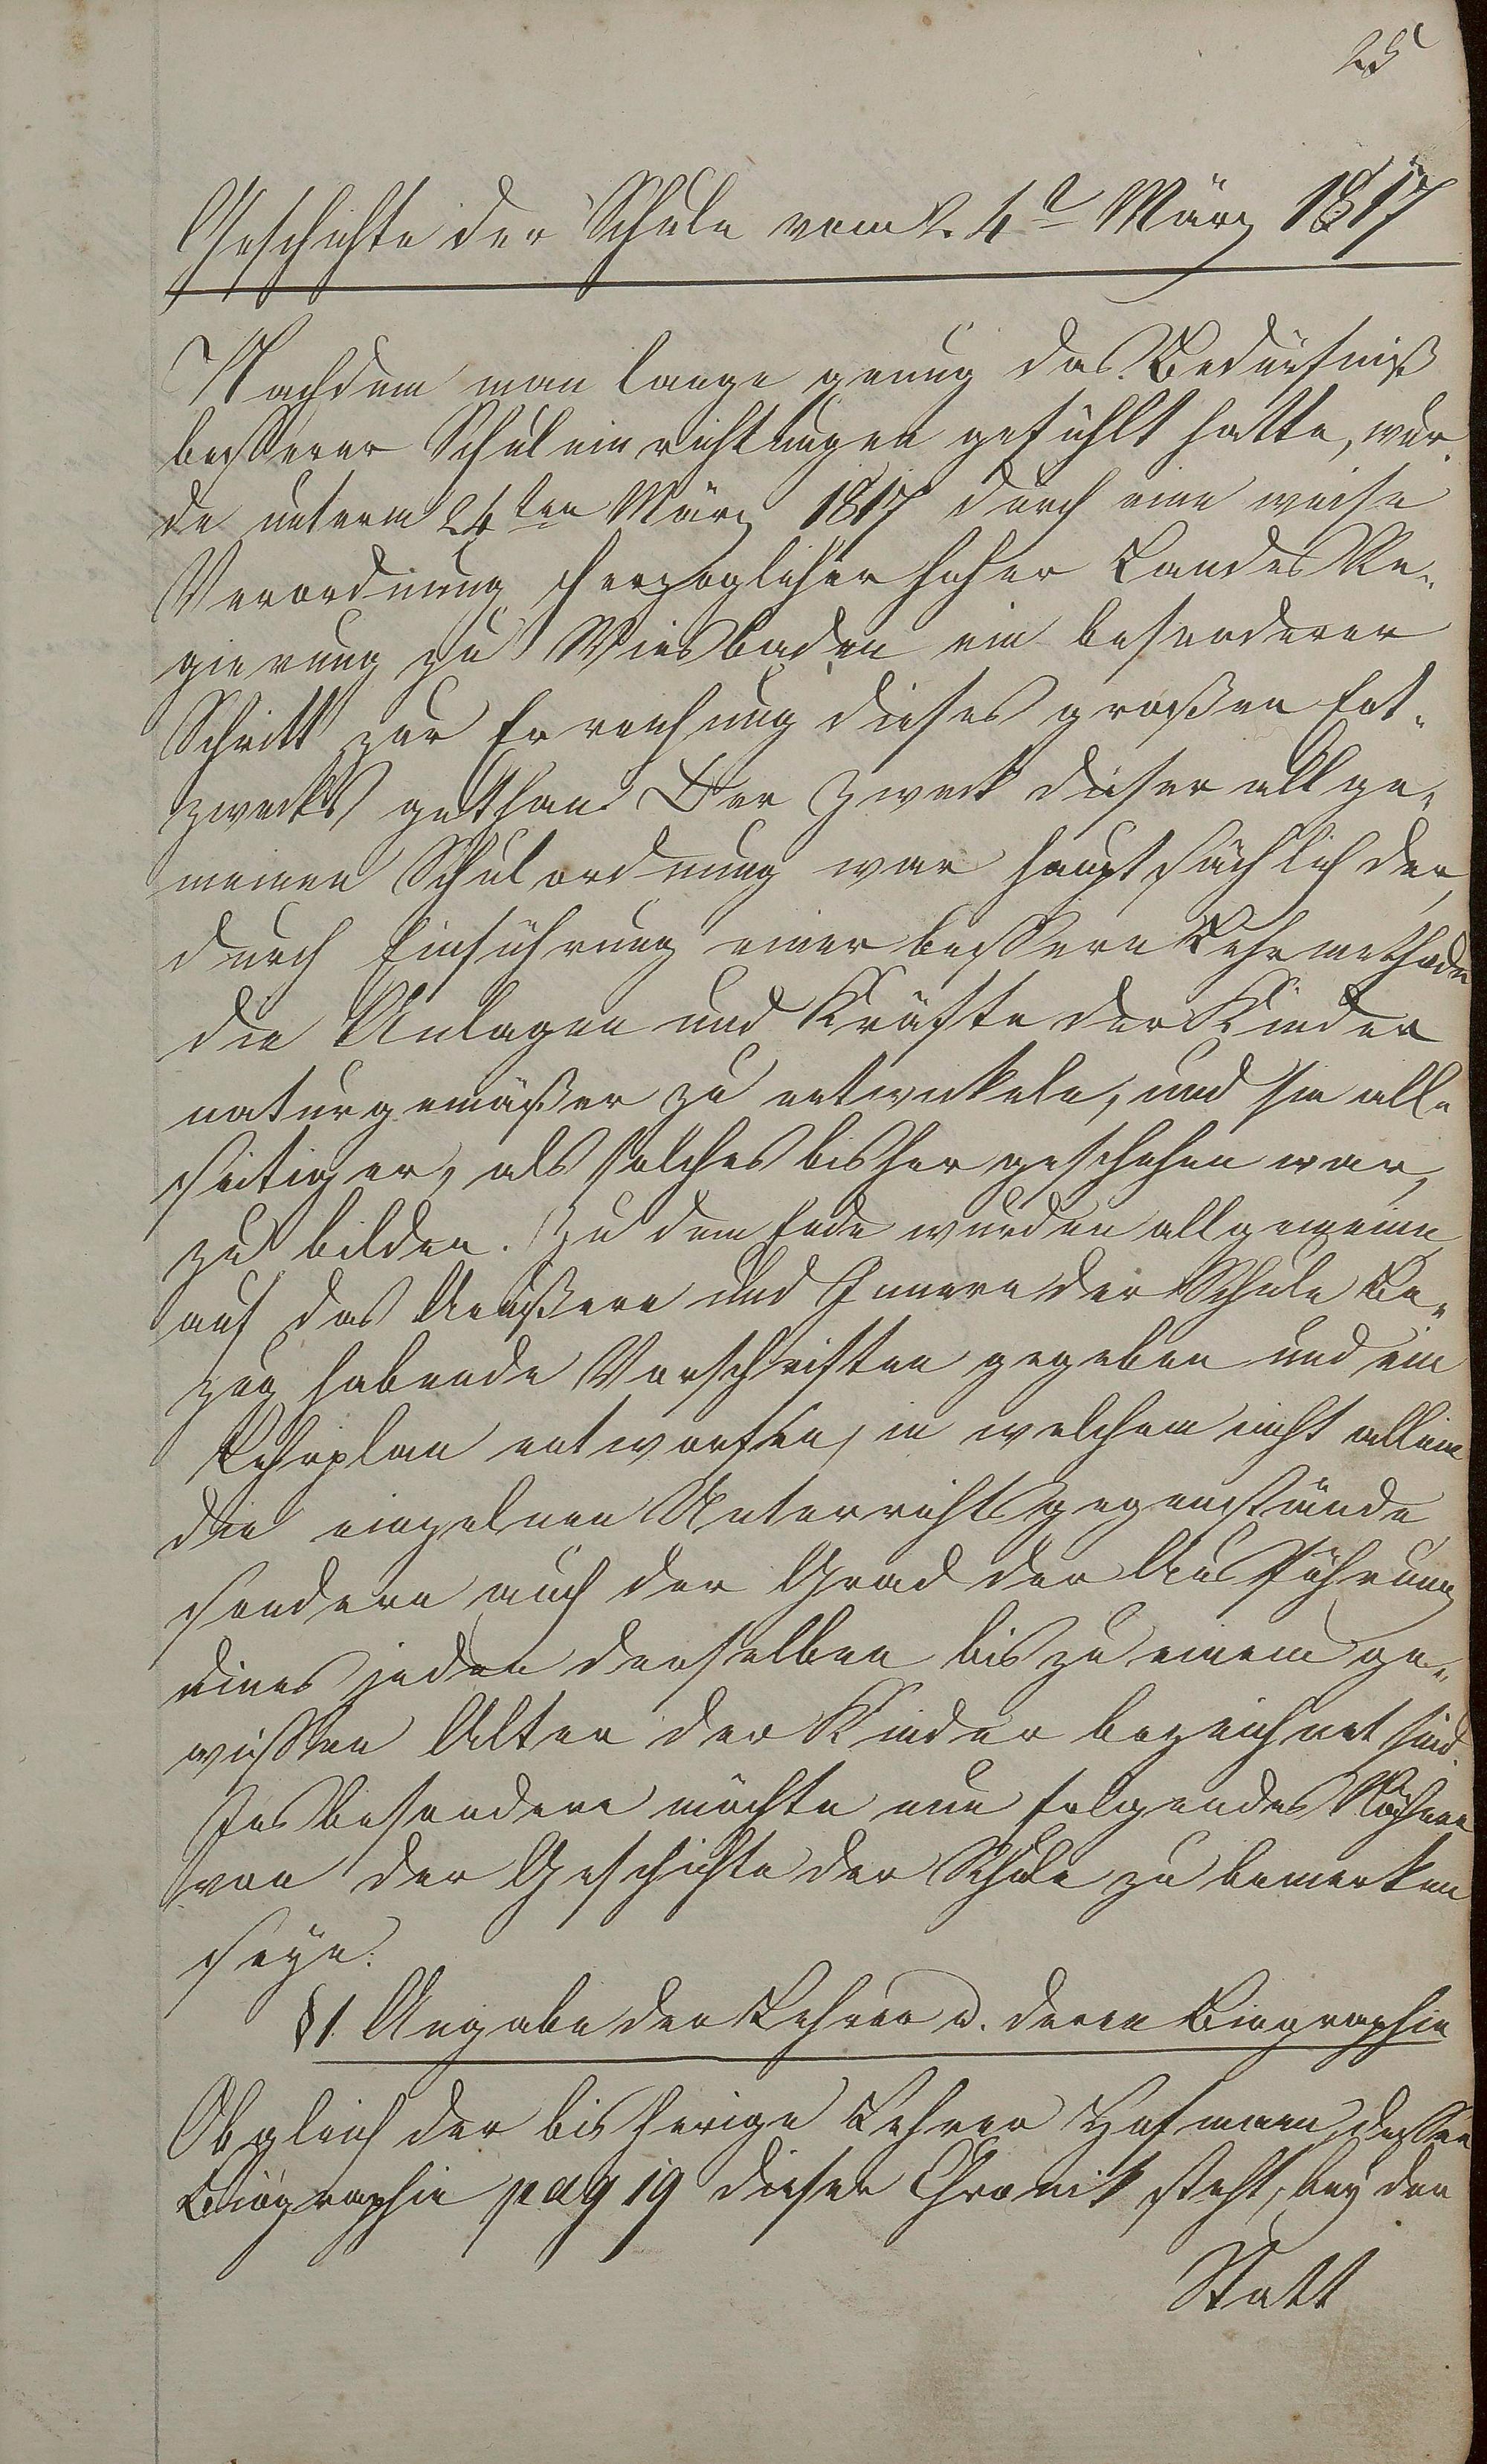 25
Geschichte der Schule vom 24t März 1817
Nachdem man lange genug das Bedürfniß
besserer Schuleinrichtungen gefühlt hatte, wur-
de unterm 24ten März 1817 durch eine weise
Verordnung Herzoglicher hoher Landes Re-
gierung zu Wiesbaden ein besonderer
Schritt zur Erreichung dieses großen End-
zwecks gethan. Der Zweck dieser allge-
meinen Schulordnung war hauptsächlich der,
durch Einführung einer bessern Lehrmethode
die Anlagen und Kräfte der Kinder
naturgemäßer zu entwickeln, und sie all-
seitiger, als solches bisher geschehen war,
zu bilden. Zu dem Ende wurden allgemeine
auf das Aeußere und Innere der Schule Be-
zug habende Vorschriften gegeben und ein
Lehrplan entworfen, in welchem nicht allein
die einzelnen Unterrichtsgegenstände
sondern auch der Grad der Ausführung
eines jeden derselben bis zu einem ge-
wissen Alter der Kinder bezeichnet sind.
Insbesondere möchte nun folgendes Nähere
von der Geschichte der Schule zu bemerken
seyn.
§1. Angabe der Lehrer u. deren Biographie
Obgleich der bisherige Lehrer Hofmann, dessen
Biographie pag 19 dieser Chronik steht, bey der
Statt